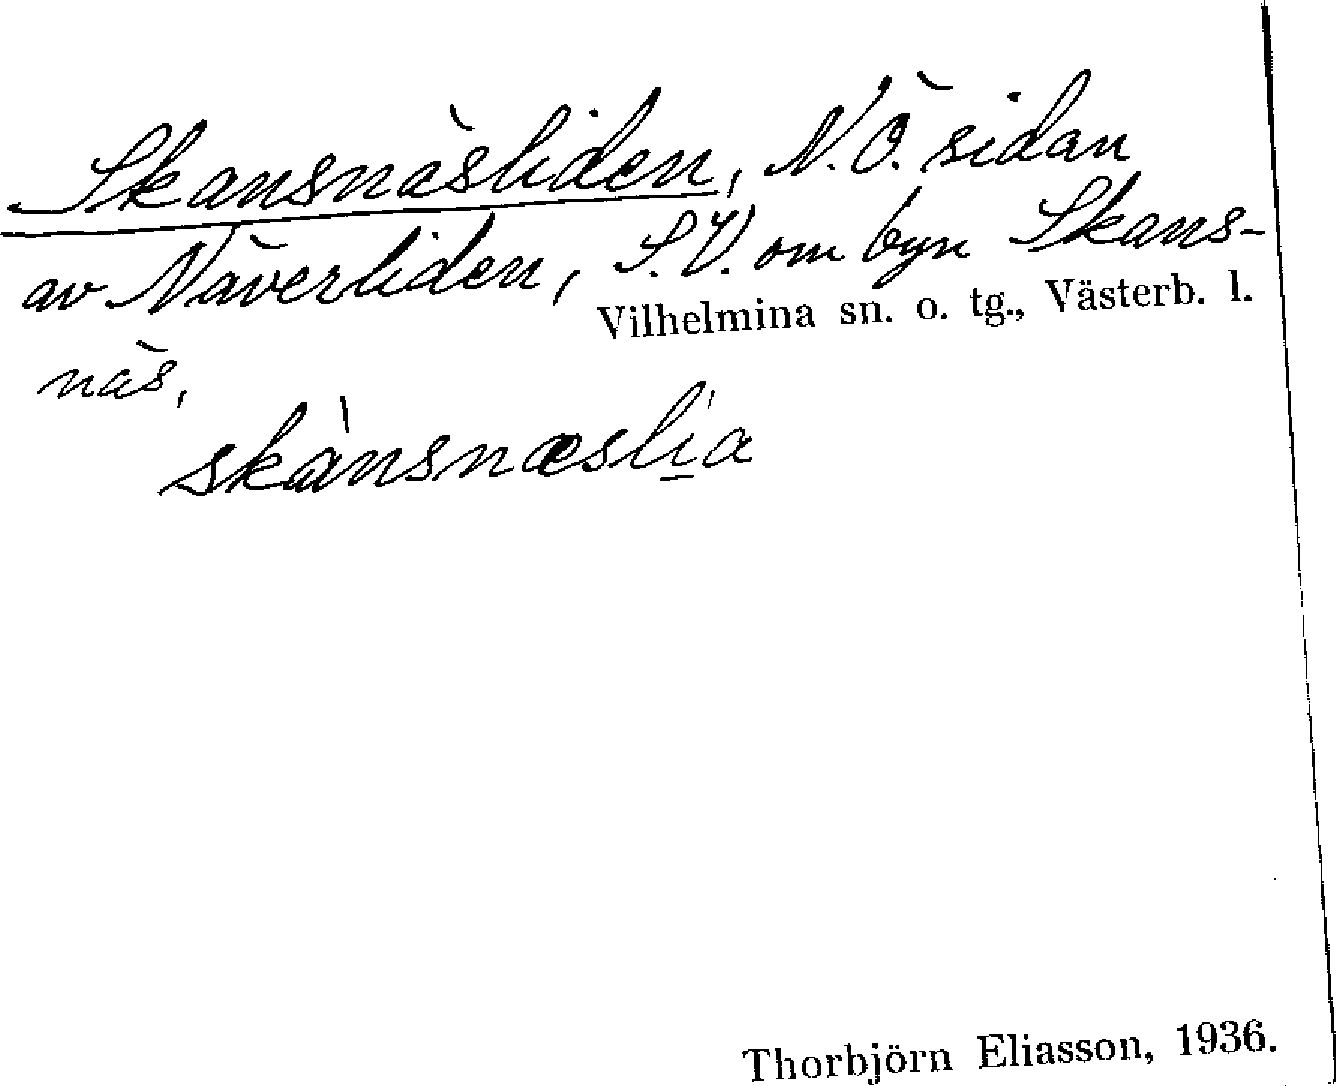 Skansnäsliden, N.Ö. sidan
av Näverliden, S.V. om byn Skans-
Vilhelmina sn. o. tg., Västerb. l.
näs,
skànsnæsli̠'a
Thorbjörn Eliasson, 1936.